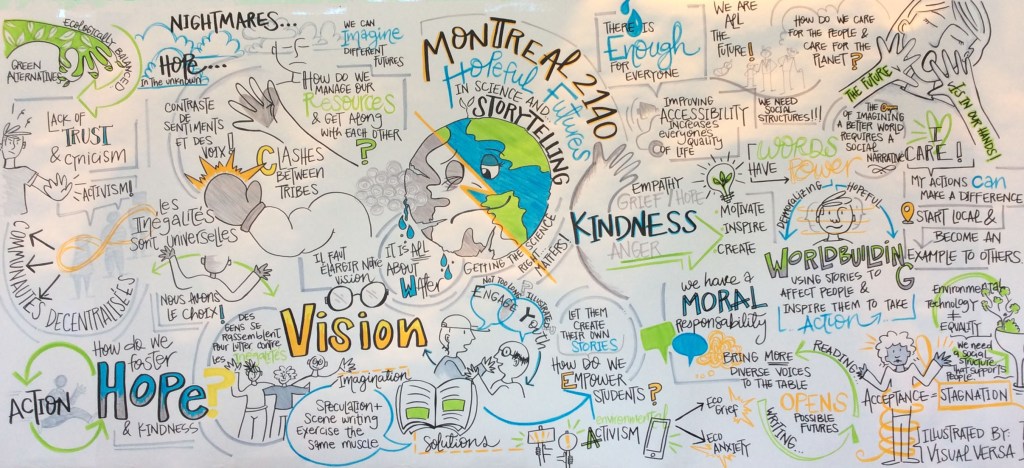 ECOLOGICALLY BALANCED
GREEN
ALTERNATIVES
NIGHTMARES...
HOPE....
In the unknown
WE CAN
Imagine
DIFFERENT
FUTURES
LACK OF
TRUST
& CYNICISM
ACTIVISM!
CONTRASTE
DE
SENTIMENTS
ET DES
VOIX!
HOW DO WE
MANAGE OUR
RESOURCES
& GET ALONG
WITH EACH OTHER
?
CLASHES
BETWEEN
TRIBES
les
INÉGALITÉS
SONT UNIVERSELLES
COMMUNAUTÉS DÉCENTRALISÉES
NOUS AVONS
LE CHOIX!
IL FAUT
ÉLARGIR NOTRE
VISION
MONTREAL 2140
Hopeful Futures
IN SCIENCE AND
STORYTELLING
IT IS ALL
ABOUT
WATER
GETTING THE
RIGHT SCIENCE
MATTERS!
THERE IS
Enough
FOR
EVERYONE
WE ARE
ALL
THE
FUTURE!
HOW DO WE CARE
FOR THE PEOPLE &
CARE FOR THE
PLANET?
THE FUTURE
IS IN OUR HANDS!
IMPROVING
ACCESSIBILITY
INCREASES
everyone's
QUALITY
OF LIFE
WE NEED
SOCIAL
STRUCTURES!!!
THE
OF IMAGINING
A BETTER WORLD
REQUIRES A
SOCIAL
NARRATIVE
I
CARE!
WORDS
HAVE
POWER
EMPATHY
GRIEF/HOPE
KINDNESS
ANGER
MOTIVATE
INSPIRE
CREATE
DEMORALIZING
HOPEFUL
WORLDBUILDING
USING STORIES TO
AFFECT PEOPLE &
INSPIRE THEM TO TAKE
ACTION
MY ACTIONS CAN
MAKE A DIFFERENCE
START LOCAL &
BECOME AN
EXAMPLE TO OTHERS.
we have a
MORAL
Responsability
ENVIRONMENTAL
TECHNOLOGY
=
EQUALITY
we need
a social
structure
that supports
people
ACTION
How do we
foster
HOPE?
& KINDNESS
DES
GENS SE
RASSEMBLENT
Pour lutter contre
les INÉGALITÉS
Vision
Imagination
SPECULATION +
SCENE WRITING
EXERCISE THE
SAME MUSCLE
Solutions
ENGAGE
YOUTH
LET THEM
CREATE
THEIR OWN
STORIES
HOW DO WE
EMPOWER
STUDENTS?
environmental
ACTIVISM
ECO
GRIEF
ECO
ANXIETY
BRING MORE
DIVERSE VOICES
TO THE TABLE
READING
OPENS
POSSIBLE
FUTURES
WRITING
ACCEPTANCE = STAGNATION
ILLUSTRATED BY:
VISUAL VERSA